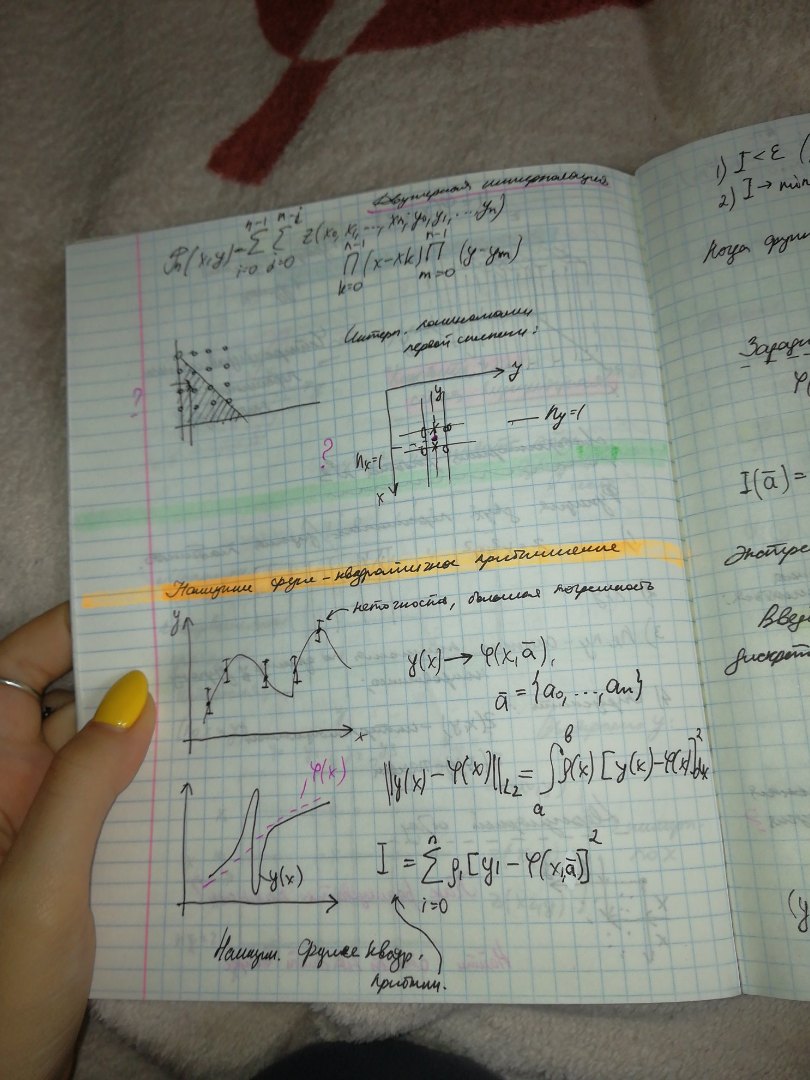 Двумерная интерполяция
Pn(x,y)=∑_{i=0}^{n-1} ∑_{j=0}^{n-i} z(x0, x1, ..., xn; y0, y1, ..., yn)
∏_{k=0}^{n-1} (x-xk) ∏_{m=0}^{n-1} (y-ym)
Интерп. полиномами
первой степени:
?
y
y
ny=1
nx=1
x
?
Наилучшее средне-квадратичное приближение
y
неточность, большая погрешность
y(x) → φ(x,ā),
ā = {a0, ..., an}
x
||y(x) - φ(x)||L2 = ∫_a^b ρ(x) [y(x)-φ(x)]² dx
φ(x)
y(x)
I = ∑_{i=0}^{n} ρi [yi - φ(x,ā)]²
Наилучш. средне квадр.
приближ.
1) I<ε (
2) I → min
Когда
I(ā) =
Введ
дискрет
(y